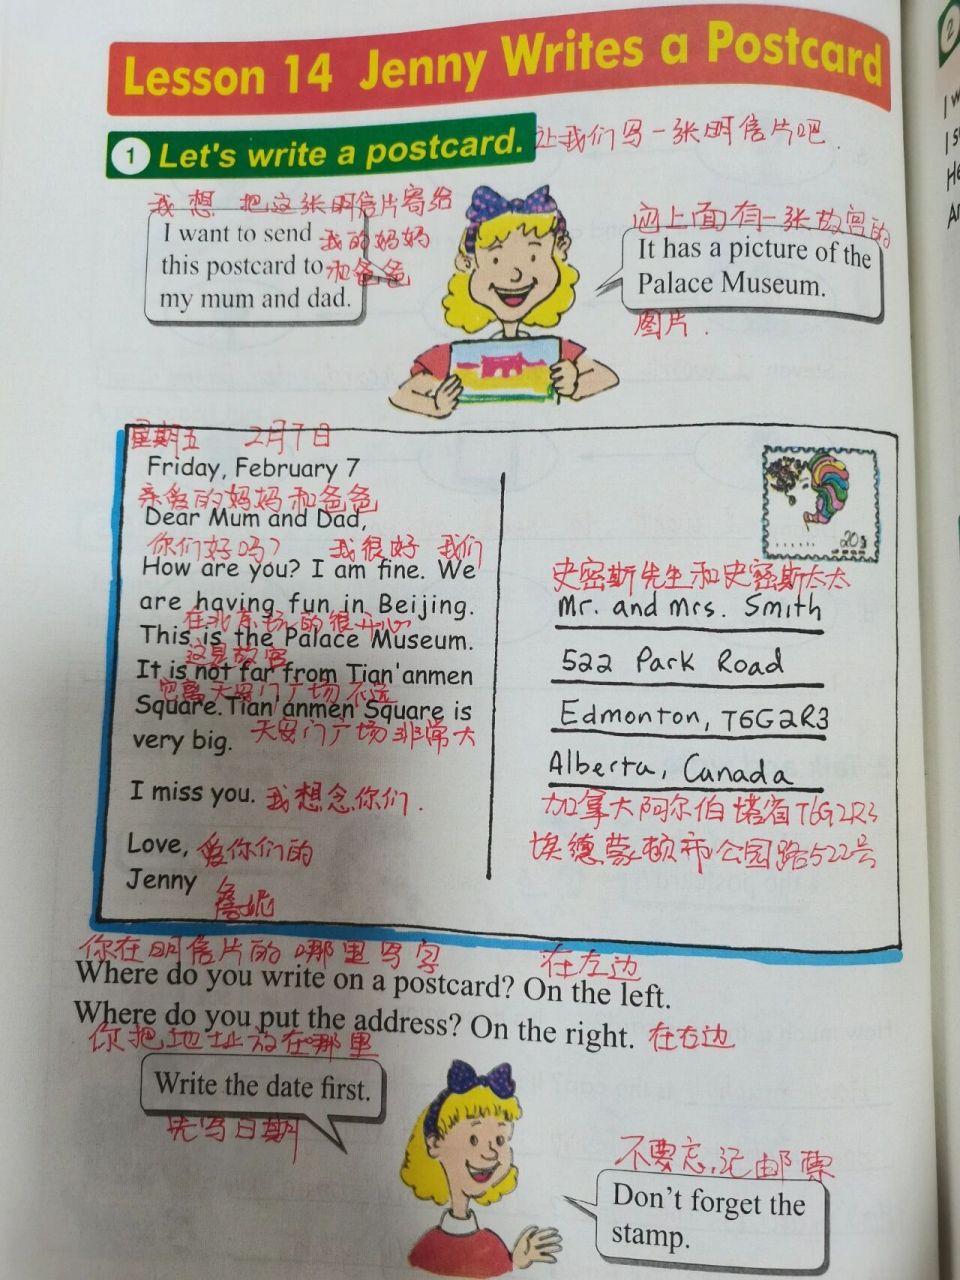 Lesson 14 Jenny Writes a Postcard
1 Let's write a postcard. 让我们写一张明信片吧.
我想把这张明信片寄给
I want to send 我的妈妈
this postcard to 和爸爸
my mum and dad.
它上面有一张故宫的
It has a picture of the
Palace Museum.
图片.
星期五 2月7日
Friday, February 7
亲爱的妈妈和爸爸
Dear Mum and Dad,
你们好吗? 我很好 我们
How are you? I am fine. We
are having fun in Beijing.
在北京玩的很开心
This is the Palace Museum.
这是故宫
It is not far from Tian'anmen
它离天安门广场不远
Square. Tian'anmen Square is
very big. 天安门广场非常大
I miss you. 我想念你们.
Love, 爱你们的
Jenny
詹妮
20
史密斯先生和史密斯太太
Mr. and Mrs. Smith
522 Park Road
Edmonton, T6G2R3
Alberta, Canada
加拿大阿尔伯塔省T6G2R3
埃德蒙顿市公园路522号
你在明信片的哪里写字 在左边
Where do you write on a postcard? On the left.
Where do you put the address? On the right. 在右边
你把地址放在哪里
Write the date first.
先写日期
不要忘记邮票
Don't forget the
stamp.
2
I w
He